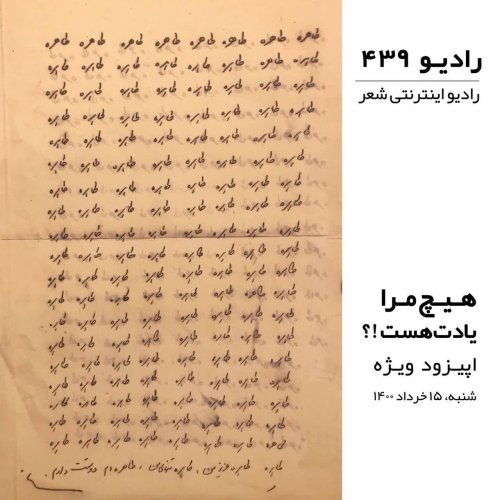 رادیو ۴۳۹
رادیو اینترنتی شعر
هیچ مرا
یادت هست!؟
اپیزود ویژه
شنبه، ۱۵ خرداد ۱۴۰۰
طاهره طاهره طاهره طاهره طاهره طاهره طاهره طاهره
طاهره طاهره طاهره طاهره طاهره طاهره طاهره طاهره
طاهره طاهره طاهره طاهره طاهره طاهره طاهره طاهره
طاهره طاهره طاهره طاهره طاهره طاهره طاهره طاهره
طاهره طاهره طاهره طاهره طاهره طاهره طاهره طاهره
طاهره طاهره طاهره طاهره طاهره طاهره طاهره طاهره
طاهره طاهره طاهره طاهره طاهره طاهره طاهره طاهره
طاهره طاهره طاهره طاهره طاهره طاهره طاهره طاهره
طاهره طاهره طاهره طاهره طاهره طاهره طاهره طاهره
طاهره طاهره طاهره طاهره طاهره طاهره طاهره طاهره
طاهره طاهره طاهره طاهره طاهره طاهره طاهره طاهره
طاهره طاهره طاهره طاهره طاهره طاهره طاهره طاهره
طاهره طاهره طاهره طاهره طاهره طاهره طاهره طاهره
طاهره طاهره طاهره طاهره طاهره طاهره طاهره طاهره
طاهره طاهره طاهره طاهره طاهره طاهره طاهره طاهره
طاهره طاهره طاهره طاهره طاهره طاهره طاهره طاهره
طاهره طاهره طاهره طاهره طاهره طاهره طاهره طاهره
طاهره طاهره طاهره طاهره طاهره طاهره طاهره طاهره
طاهره طاهره طاهره طاهره طاهره طاهره طاهره طاهره
طاهره طاهره عزیز من، طاهره تنهای من، طاهره‌ام دوستت دارم.